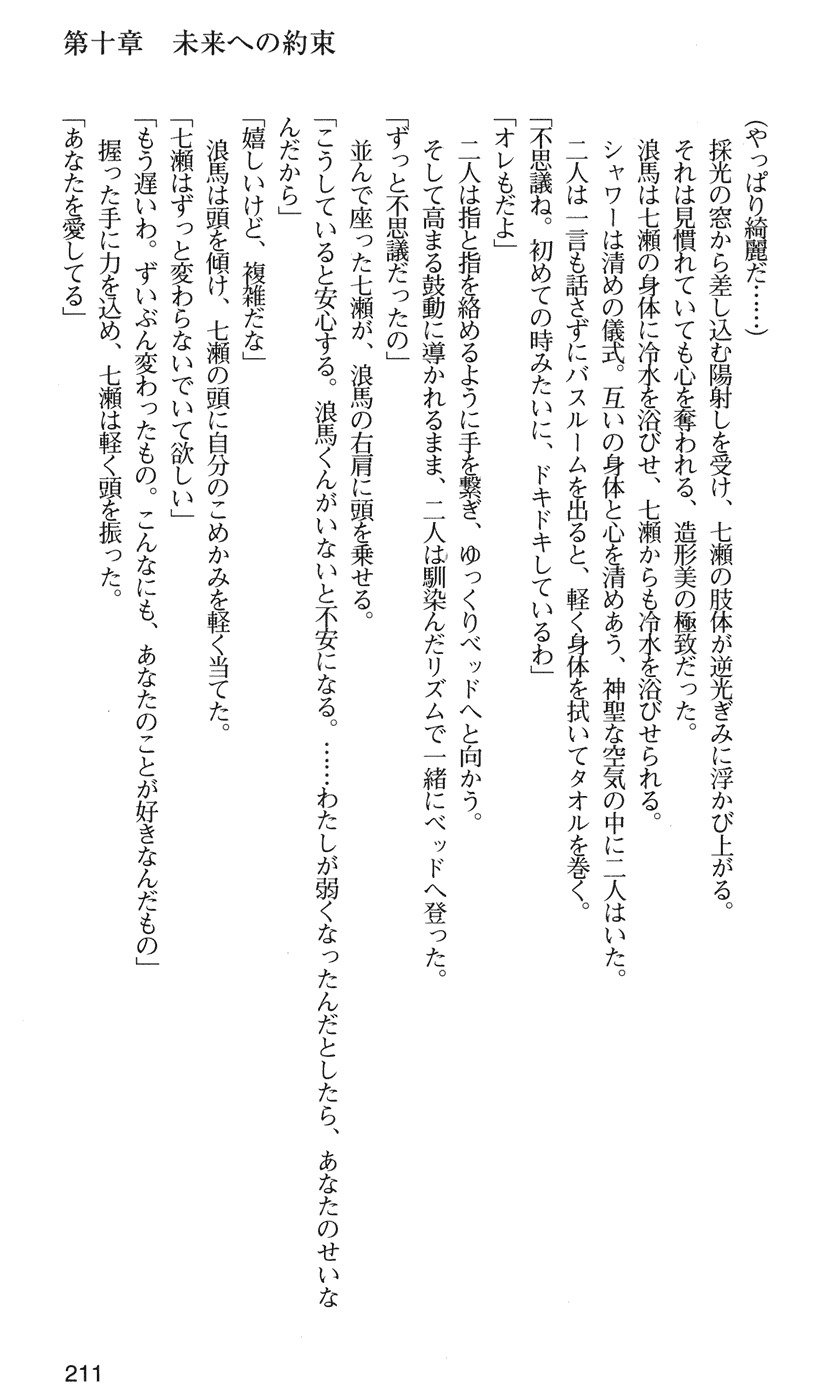 第十章　未来への約束
(やっぱり綺麗だ……)
　採光の窓から差し込む陽射しを受け、七瀬の肢体が逆光ぎみに浮かび上がる。
　それは見慣れていても心を奪われる、造形美の極致だった。
　浪馬は七瀬の身体に冷水を浴びせ、七瀬からも冷水を浴びせられる。
　シャワーは清めの儀式。互いの身体と心を清めあう、神聖な空気の中に二人はいた。
　二人は一言も話さずにバスルームを出ると、軽く身体を拭いてタオルを巻く。
「不思議ね。初めての時みたいに、ドキドキしているわ」
「オレもだよ」
　二人は指と指を絡めるように手を繋ぎ、ゆっくりベッドへと向かう。
　そして高まる鼓動に導かれるまま、二人は馴染んだリズムで一緒にベッドへ登った。
「ずっと不思議だったの」
　並んで座った七瀬が、浪馬の右肩に頭を乗せる。
「こうしていると安心する。浪馬くんがいないと不安になる。……わたしが弱くなったんだとしたら、あなたのせいな
んだから」
「嬉しいけど、複雑だな」
　浪馬は頭を傾け、七瀬の頭に自分のこめかみを軽く当てた。
「七瀬はずっと変わらないでいて欲しい」
「もう遅いわ。ずいぶん変わったもの。こんなにも、あなたのことが好きなんだもの」
　握った手に力を込め、七瀬は軽く頭を振った。
「あなたを愛してる」
211